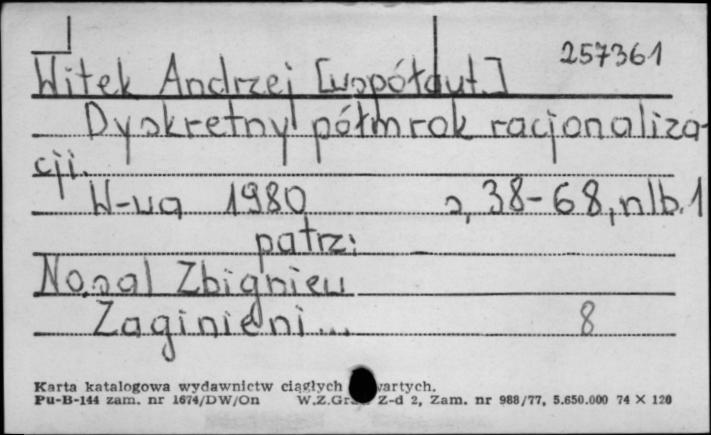 257361
Witek Andrzej [współaut.]
Dyskretny półmrok racjonaliza-
cji.
W-wa 1980 s, 38-68, nlb. 1
patrz:
Nosal Zbigniew
Zaginieni ... 8
Karta katalogowa wydawnictw ciągłych wartych.
Pu-B-144 zam. nr 1674/DW/On W.Z.Graf Z-d 2, Zam. nr 988/77, 5.650.000 74 × 120